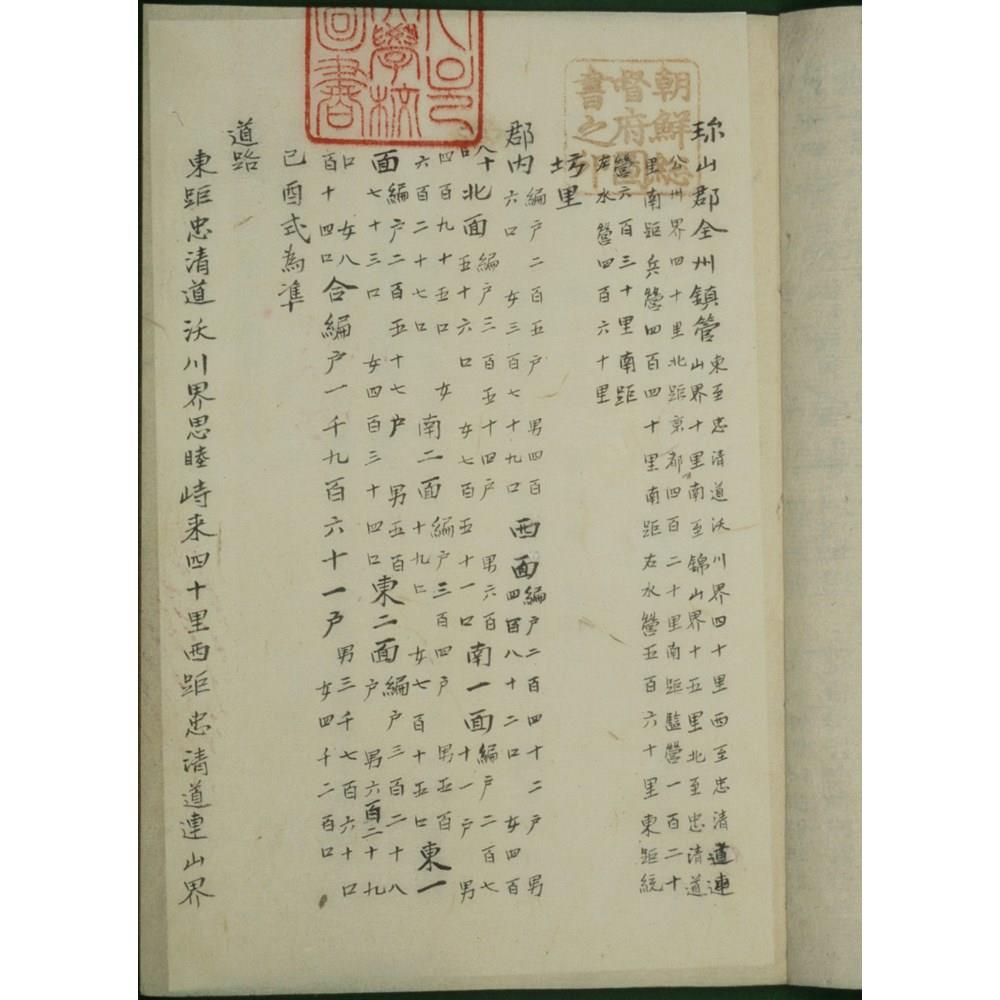 朝鮮総
督府圖
書之印
大學校
圖書
珎山郡全州鎮管東至忠清道沃川界四十里西至忠清道連
山界十里南至錦山界十五里北至忠清道
公川界四十里北距京都四百二十里南距監營一百二十
里南距兵營四百四十里南距右水營五百六十里東距統
營六百三十里南距
左水營四百六十里
坊里
郡内編戶二百五戶 男四百六口 女三百七十九口 西面編戶二百四十二戶 男四百八十二口 女四百
八十口 北面編戶三百五十四戶 男六百五十六口 女七百五十一口 南一面編戶二百七十一戶 男
四百九十五口 女六百二十七口 南二面編戶三百四戶 男五百十九口 女七百十五口 東一
面編戶二百五十七戶 男五百七十三口 女四百三十四口 東二面編戶三百二十八戶 男六百二十九
口 女八百十四口 合編戶一千九百六十一戶 男三千七百六十口 女四千二百口
己酉式為準
道路
東距忠清道沃川界思睦峙来四十里西距忠清道連山界